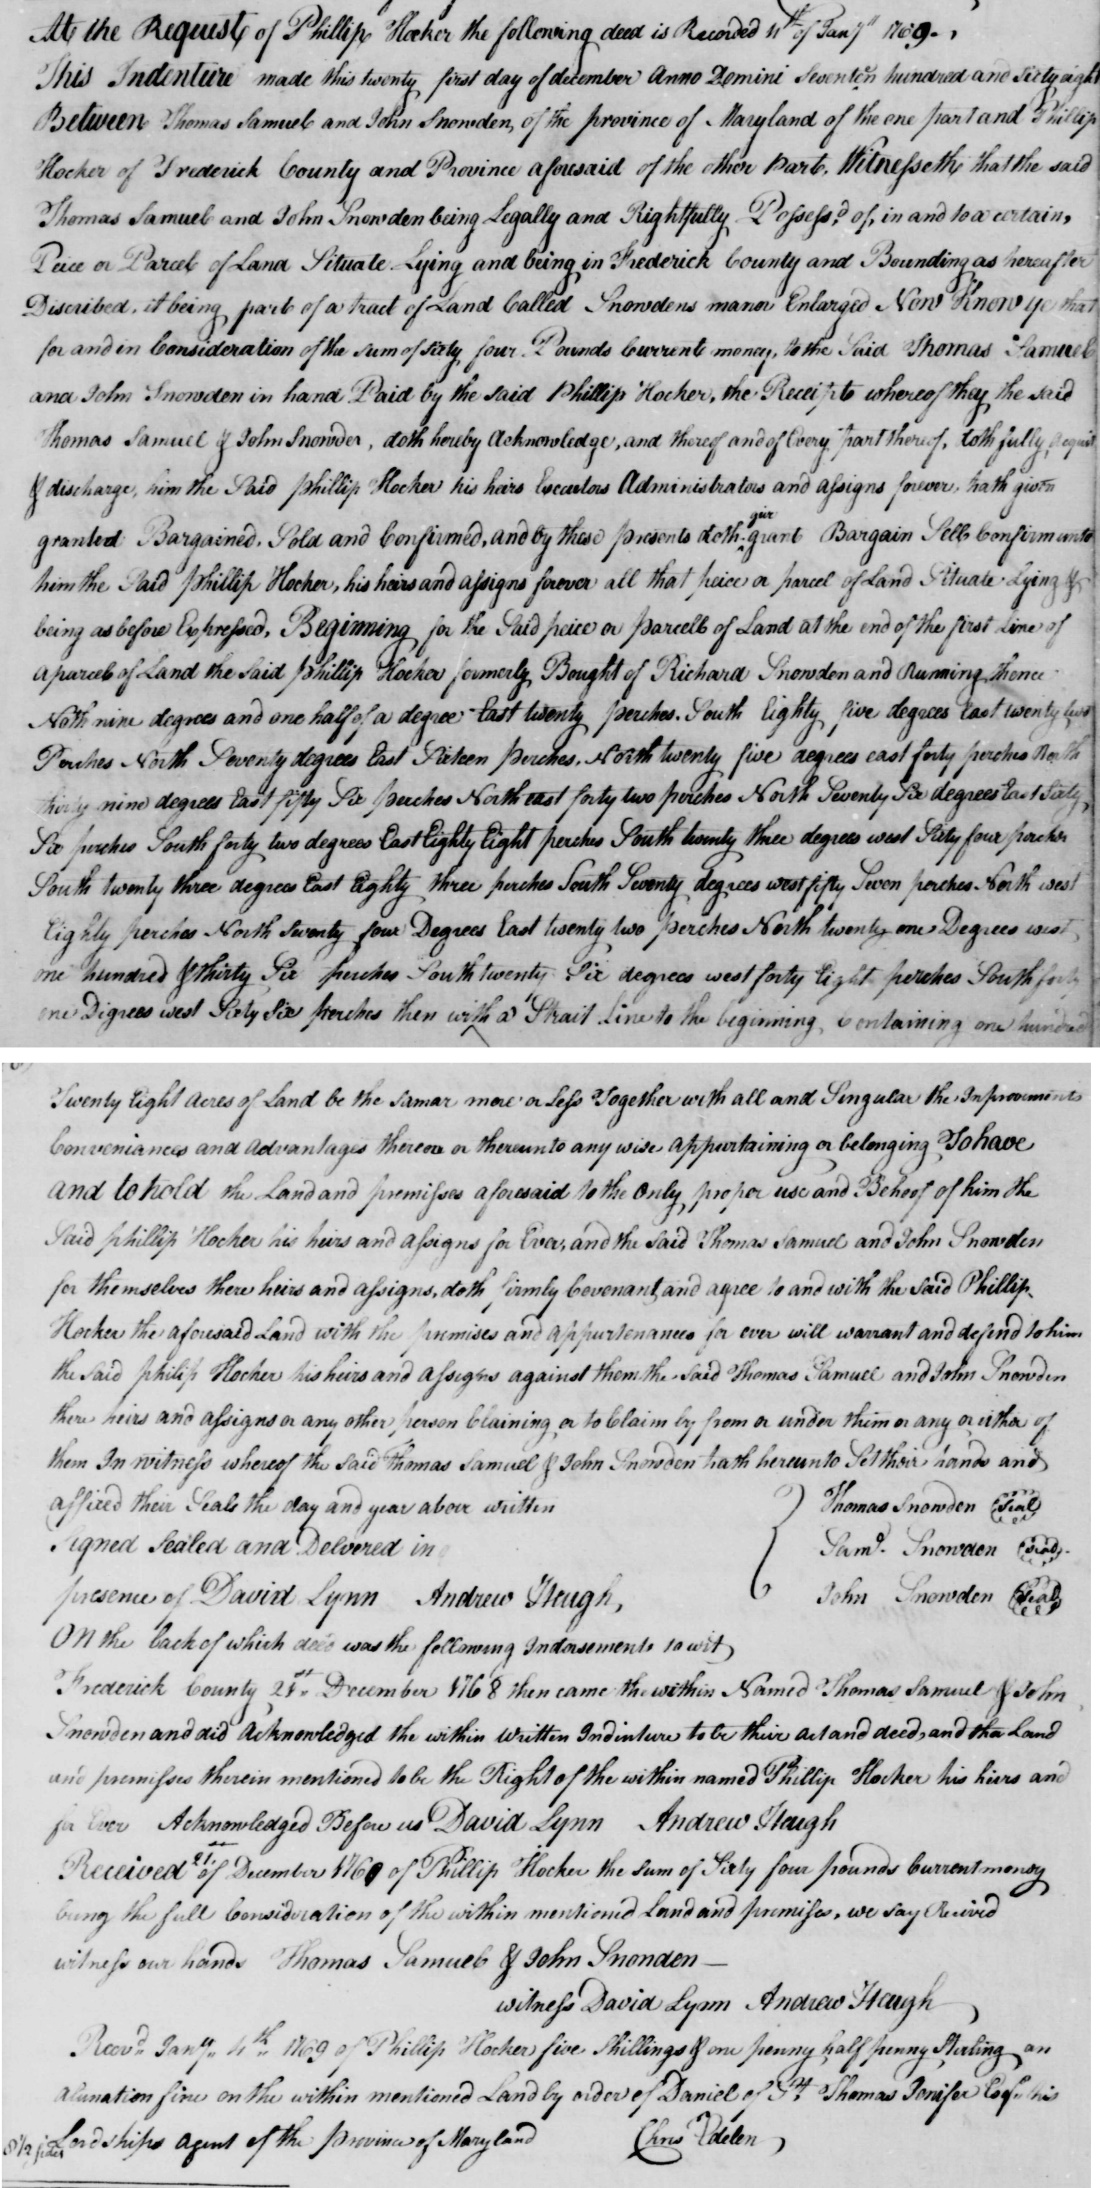 At the Request of Phillip Hocker the following deed is Recorded 4th of Jany 1769.
This Indenture made this twenty first day of december Anno Domini Seventen hundred and Sixty eight
Between Thomas Samuel and John Snowden, of the province of Maryland of the one part and Phillip
Hocker of Frederick County and Province aforesaid of the other Part, Witnesseth that the said
Thomas Samuel and John Snowden being Legally and Rightfully Possess'd of, in and to a certain,
Peice or Parcel of Land Situate Lying and being in Frederick County and Bounding as hereafter
Discribed, it being part of a tract of Land Called Snowdens manor Enlarged Now Know ye that
for and in Consideration of the Sum of Sixty four Pounds Current money, to the Said Thomas Samuel
and John Snowden in hand Paid by the said Phillip Hocker, the Receipt whereof they the said
Thomas Samuel & John Snowden, doth hereby Acknowledge, and thereof and of Every part thereof, doth fully, acquit
& discharge, him the Said phillip Hocker his heirs Executors Administrators and assigns forever, hath given
granted Bargained, Sold and Confirmed, and by these presents doth give grant Bargain Sell Confirm unto
him the Said phillip Hocker, his heirs and assigns forever all that peice or parcel of Land Situate Lying &
being as before Expressed, Beginning for the Said peice or parcell of Land at the end of the first Line of
a parcel of Land the said phillip Hocker formerly Bought of Richard Snowden and Running thence
North nine degrees and one half of a degree East twenty perches. South Eighty five degrees East twenty two
Perches North Seventy degrees East Sixteen perches, North twenty five degrees east forty perches North
thirty nine degrees East fifty Six perches North east forty two perches North Seventy Six degrees East Sixty
Six perches South forty two degrees East Eighty Eight perches South twenty three degrees west Sixty four perches
South twenty three degrees East Eighty three perches South Seventy degrees west fifty Seven perches North west
Eighty perches North Seventy four Degrees East twenty two perches North twenty one Degrees west
one hundred & thirty Six perches South twenty Six degrees west forty Eight perches South forty
one Digrees west Sixty Six perches then with a Strait Line to the beginning, Containing one hundred
Twenty Eight Acres of Land be the samar more or Less Together with all and Singular the Improvements
Conveniances and Advantages thereon or thereunto any wise appurtaining or belonging To have
and to hold the Land and premisses aforesaid to the only proper use and Behoof of him the
Said phillip Hocker his heirs and assigns for Ever, and the said Thomas Samuel and John Snowden
for themselves there heirs and assigns, doth firmly Covenant and agree to and with the said Phillip
Hocker the aforesaid Land with the premises and appurtenances for ever will warrant and defend to him
the said philip Hocker his heirs and assigns against them the said Thomas Samuel and John Snowden
there heirs and assigns or any other person Claining or to Claim by from or under thim or any or either of
them In witness whereof the said Thomas Samuel & John Snowden hath hereunto Set their hands and
affixed their Seals the day and year above written Thomas Snowden Seal
Signed Sealed and Delvered in Saml. Snowden Seal
presence of David Lynn Andrew Heugh, John Snowden Seal
On the back of which deed was the following Indorsements to wit,
Frederick County 21st December 1768 then came the within Named Thomas Samuel & John
Snowden and did Acknowledged the within written Indinture to be their act and deed, and the Land
and premisses therein mentioned to be the Right of the within named Phillip Hocker his hiers and
for Ever Acknowledged Before us David Lynn Andrew Heugh
Received 21st of December 1768 of Phillip Hocker the sum of Sixty four pounds Current money
being the full Consideration of the within mentioned Land and premises, we say Recived
witness our hands Thomas Samuel & John Snonden
witness David Lynn Andrew Heugh
Recvd. Jany. 4th 1769 of Phillip Hocker five Shillings & one penny half penny Sterling an
alination fine on the within mentioned Land by order of Daniel of St Thomas Jenifer Esqr his
Lordships Agent of the province of Maryland Chris Edelen